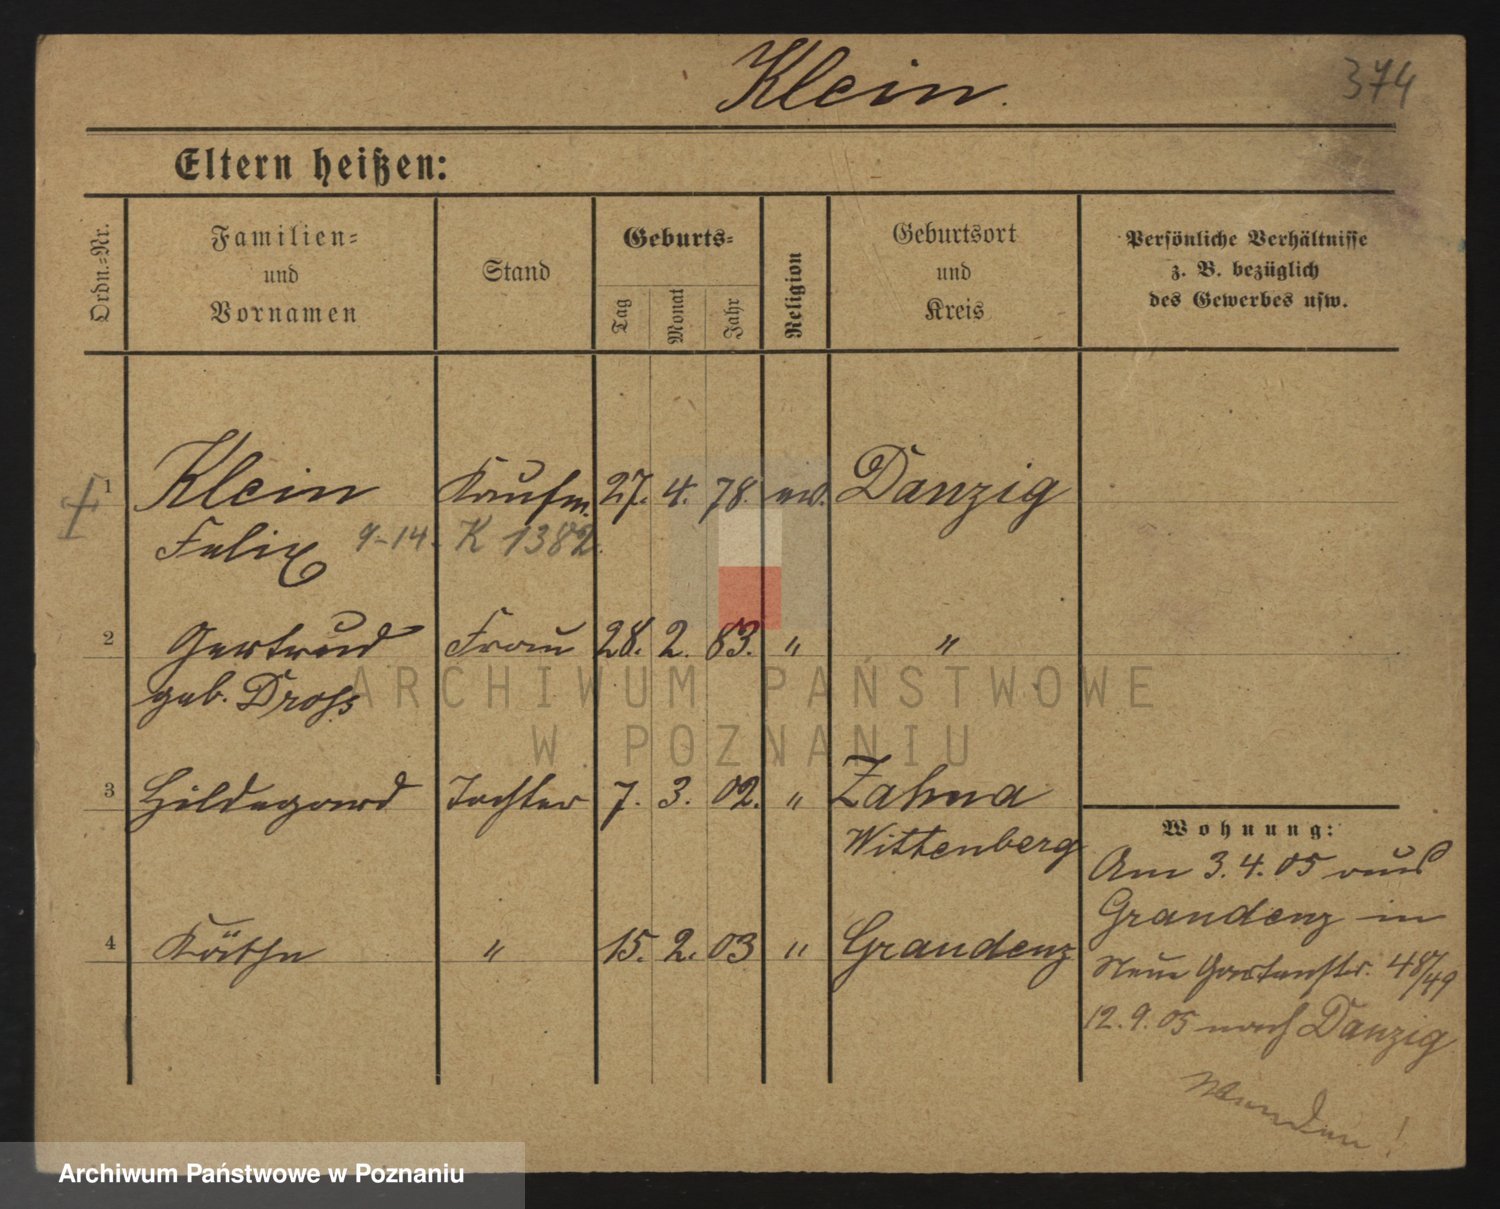 Klein.
374
Eltern heißen:
Ordn.-Nr.
Familien-
und
Vornamen
Stand
Geburts-
Tag
Monat
Jahr
Religion
Geburtsort
und
Kreis
Persönliche Verhältnisse
z. B. bezüglich
des Gewerbes usw.
1 Klein Kaufm. 27. 4. 78. ev. Danzig
Felix 9-14. K 1382.
2 Gertrud Frau 28. 2. 83. " "
geb. Dross
3 Hildegard Tochter 7. 3. 02. " Zahna
Wittenberg
4 Käthe " 15. 2. 03 " Graudenz
Wohnung:
Am 3.4.05 aus
Graudenz in
Neue Gartenstr. 48/49
12.9.05 nach Danzig
Wenden!
ARCHIWUM PAŃSTWOWE
W POZNANIU
Archiwum Państwowe w Poznaniu